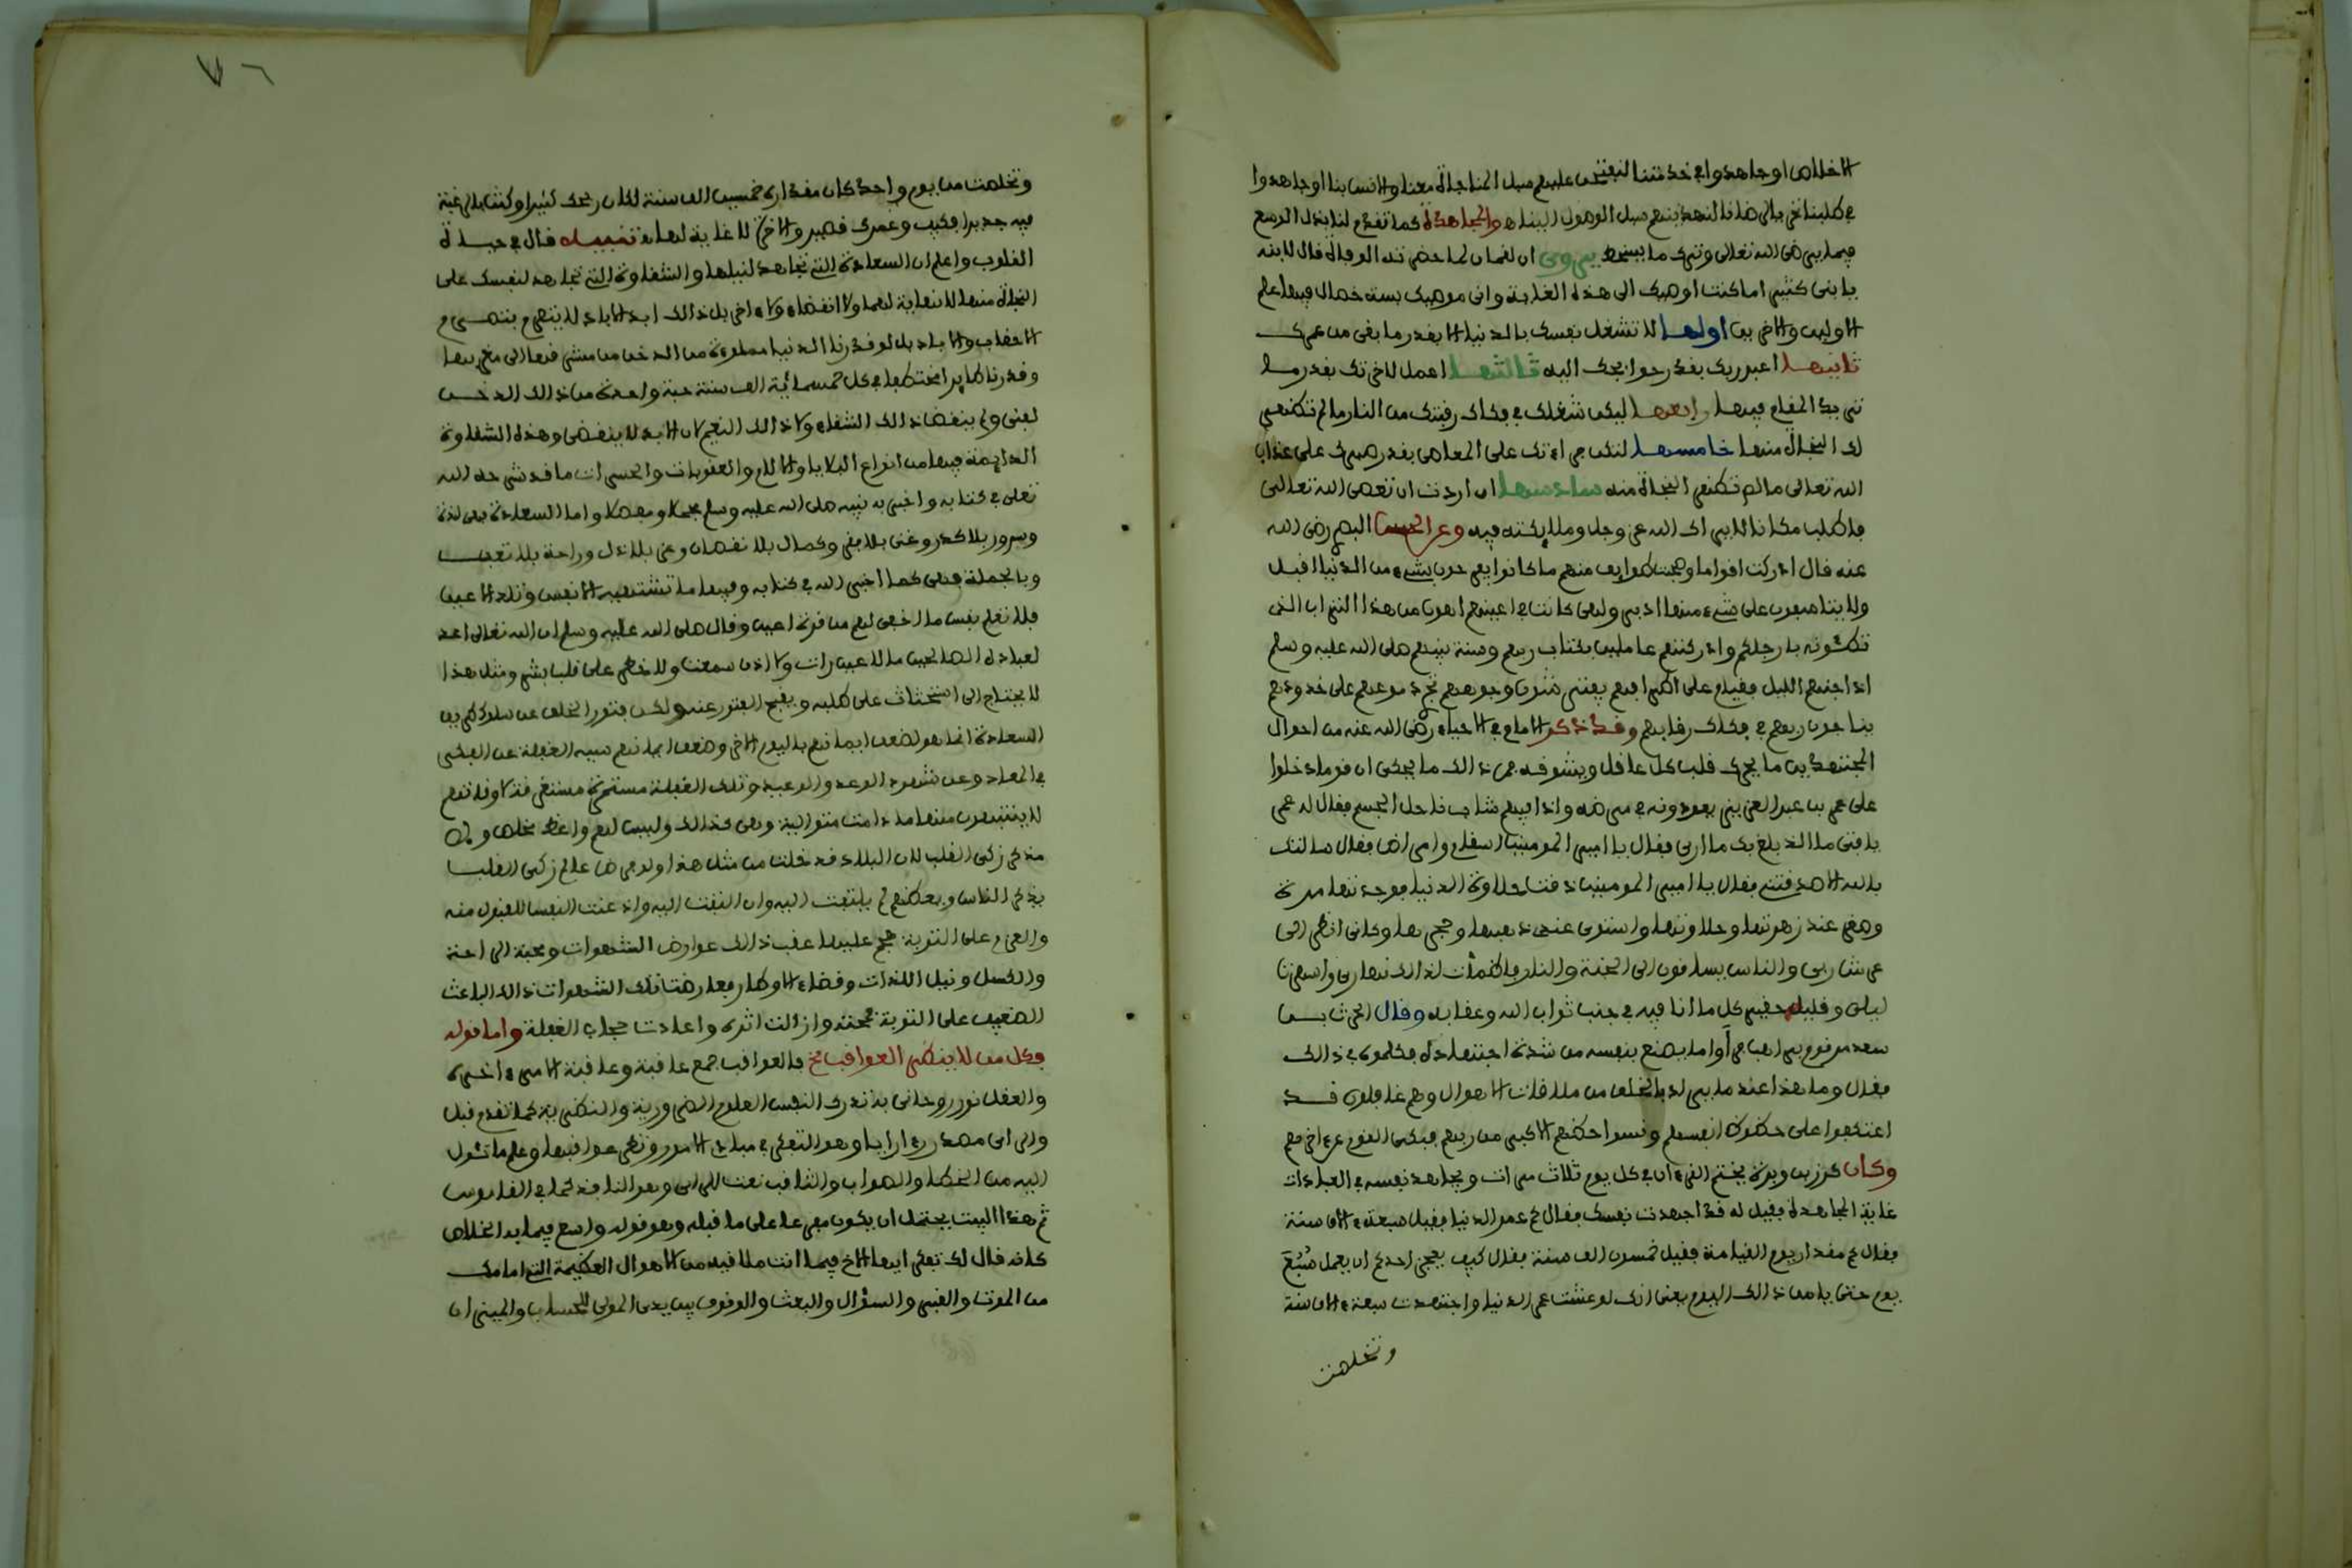 الاخلاص او جاهدوا في خدمتنا لنفتحن عليهم سبل المناجاة معنا والانس بنا او جاهدوا
في طلبنا تحريا لرضانا لنهدينهم سبل الوصول الينا هـ والمجاهدة كما تقدم لنا بذل الوسع
فيما يرضي الله تعالى وترك ما يسخطه يروى ان لقمان لما حضرته الوفاة قال لابنه
يا بنى كثيرا ما كنت اوصيك الى هذه الغاية وانى موصيك بستة خصال فيها علم
الاولين والاخرين اولها لا تشغل نفسك بالدنيا الا بقدر ما بقى من عمرك
ثانيها اعبد ربك بقدر حوايجك اليه ثالثها اعمل للاخرتك بقدر ما
تريد المقام فيها رابعها ليكن شغلك في فكاك رقبتك من النار ما لم تظهر
لك النجاة منها خامسها لتكن جراءتك على المعاصي بقدر صبرك على عذاب
الله تعالى ما لم تظهر النجاة منه سادسها ان اردت ان تعصى الله تعالى
فاطلب مكانا لا يراك الله عز وجل وملايكته فيه وعن الحسن البصرى رضى الله
عنه قال ادركت اقواما وصحبت طوايف منهم ما كانوا يفرحون بشيء من الدنيا اقبل
ولا يتاسفون على شيء منها ادبر ولهى كانت في اعينهم اهون من هذا التراب الذى
تطئونه بارجلكم وادركتهم عاملين بكتاب ربهم وسنة نبيهم صلى الله عليه وسلم
اذا جنهم الليل فقيام على اطرافهم يفترشون وجوههم تجرى دموعهم على خدودهم
يناجون ربهم في فكاك رقابهم وقد ذكر الامام في الاحياء رضى الله عنه من احوال
المجتهدين ما يحرك قلب كل عاقل ويشوقه فمن ذالك ما يحكى ان قوما دخلوا
على عمر بن عبد العزيز يعودونه في مرضه واذا فيهم شاب ناحل الجسم فقال له عمر
يا فتى ما الذ بلغ بك ما ارى فقال يا امير المومنين اسقام وامراض فقال سالتك
بالله الا صدقتنى فقال يا امير المومنين ذقت حلاوة الدنيا فوجدتها مرة
وصغر عند زهرتها وحلاوتها واستوى عندى ذهبها وحجرها وكانى انظر الى
عرش ربى والناس يساقون الى الجنة والنار فاظمأت لذالك نهارى واسهرت
ليلى وقليل حقير كل ما انا فيه في جنب ثواب الله وعقابه وقال الحرث بن
سعد مر قوم براهب فرأوا ما يصنع بنفسه من شدة اجتهاده فكلموه في ذالك
فقال وما هذا عند ما يراد بالخلق من ملاقات الاهوال وهم غافلون قد
اعتكفوا على حظوظ انفسهم ونسوا حظهم الاكبر من ربهم فبكى القوم عن اخرهم
وكان كرز بن وبرة يختم القرءان في كل يوم ثلاث مرات ويجاهد نفسه في العبادات
غاية المجاهدة فقيل له قد اجهدت نفسك فقال كم عمر الدنيا فقيل سبعة ءالاف سنة
فقال كم مقدار يوم القيامة فقيل خمسون الف سنة فقال كيف يعجز احدكم ان يعمل سُبُعَ
يوم حتى يامن ذالك اليوم يعنى انك لو عشت عمر الدنيا واجتهدت سبعة ءالاف سنة
وتخلصت
وتخلصت من يوم واحد كان مقداره خمسين الف سنة لكان ربحك كثيرا وكنت بالرغبة
فيه جديرا فكيف وعمرك قصير والاخرة لا غاية لها هـ تنبيه قال في حياة
القلوب واعلم ان السعادة التى تجاهد لنيلها والشقاوة التى تجاهد لنفسك على
النجاة منها لا نهاية لهما ولا انقضاء ولا ءاخر بل ذالك ابد الاباد لا ينصرم بتصرم
الاحقاب والاباد بل لو قدرنا الدنيا مملوءة من الدخن من مشرقها الى مغربها
وقدرنا طايرا يختطف في كل خمسماية الف سنة حبة واحدة من ذالك الدخن
لفنى ولم ينقض ذالك الشقاء ولا ذالك النعيم لان الابد لا ينقضى وهذه الشقاوة
الدايمة فيها من انواع البلايا والالام والعقوبات والحسرات ما قد شرحه الله
تعلى في كتابه واخبر به نبيه صلى الله عليه وسلم مجملا ومفصلا واما السعادة فهى لذة
وسرور بلا كدر وغنى بلا فقر وكمال بلا نقصان وعز بلا ذل وراحة بلا تعب
وبالجملة فهى كما اخبر الله في كتابه وفيها ما تشتهيه الانفس وتلذ الاعين
فلا تعلم نفس ما اخفى لهم من قرة اعين وقال صلى الله عليه وسلم ان الله تعالى اعد
لعباده الصالحين ما لا عين رات ولا اذن سمعت ولا خطر على قلب بشر ومثل هذا
لا يحتاج الى استحثاث على طلبه ويقبح الفتور عنه ولكن فتور الخلق عن سلوك طريق
السعادة انما هو لضعف ايمانهم باليوم الاخر وضعف ايمانهم سببه الغفلة عن الفكر
في المعاد وعن شهود الوعد والوعيد وتلك الغفلة مستمرة مستغرقة لاوقاتهم
لا ينتبهون منها ما دامت متوالية وهى كذالك وليس لهم واعظ مخلص ولا
مذكر زكى القلب لان البلاد قد خلت من مثل هذا ولو فرض عالم زكى القلب
يذكر الناس ويعظهم لم يلتفت اليه وان التفت اليه واذعنت النفس للقبول منه
والعزم على التوبة هجم عليها عقب ذالك عوارض الشهوات ومحبة الراحة
والكسل ونيل اللذات وقضاء الاوطار فعارضت تلك الشهوات ذالك الباعث
الضعيف على التوبة فمحته وازالت اثره واعادت حجاب الغفلة واما قوله
فكل من لا ينظر العواقب الخ فالعواقب جمع عاقبة وعاقبة الامر ءاخره
والعقل نور روحانى به تدرك النفس العلوم الضرورية والنظرية كما تقدم قبل
والراى مصدر راى رايا وهو التفكر في مبادى الامور ونظر عواقبها وعلم ما تئول
اليه من الخطا والصواب والثاقب نعت للراى وهو النافذ كما في القاموس
ثم هذا البيت يحتمل ان يكون مفرعا على ما قبله وهو قوله واسع فيما به الخلاص
كانه قال لك تفكر ايها الاخ فيما انت ملاقيه من الاهوال العظيمة التى امامك
من الموت والقبر والسؤال والبعث والوقوف بين يدى المولى للحساب والميزان